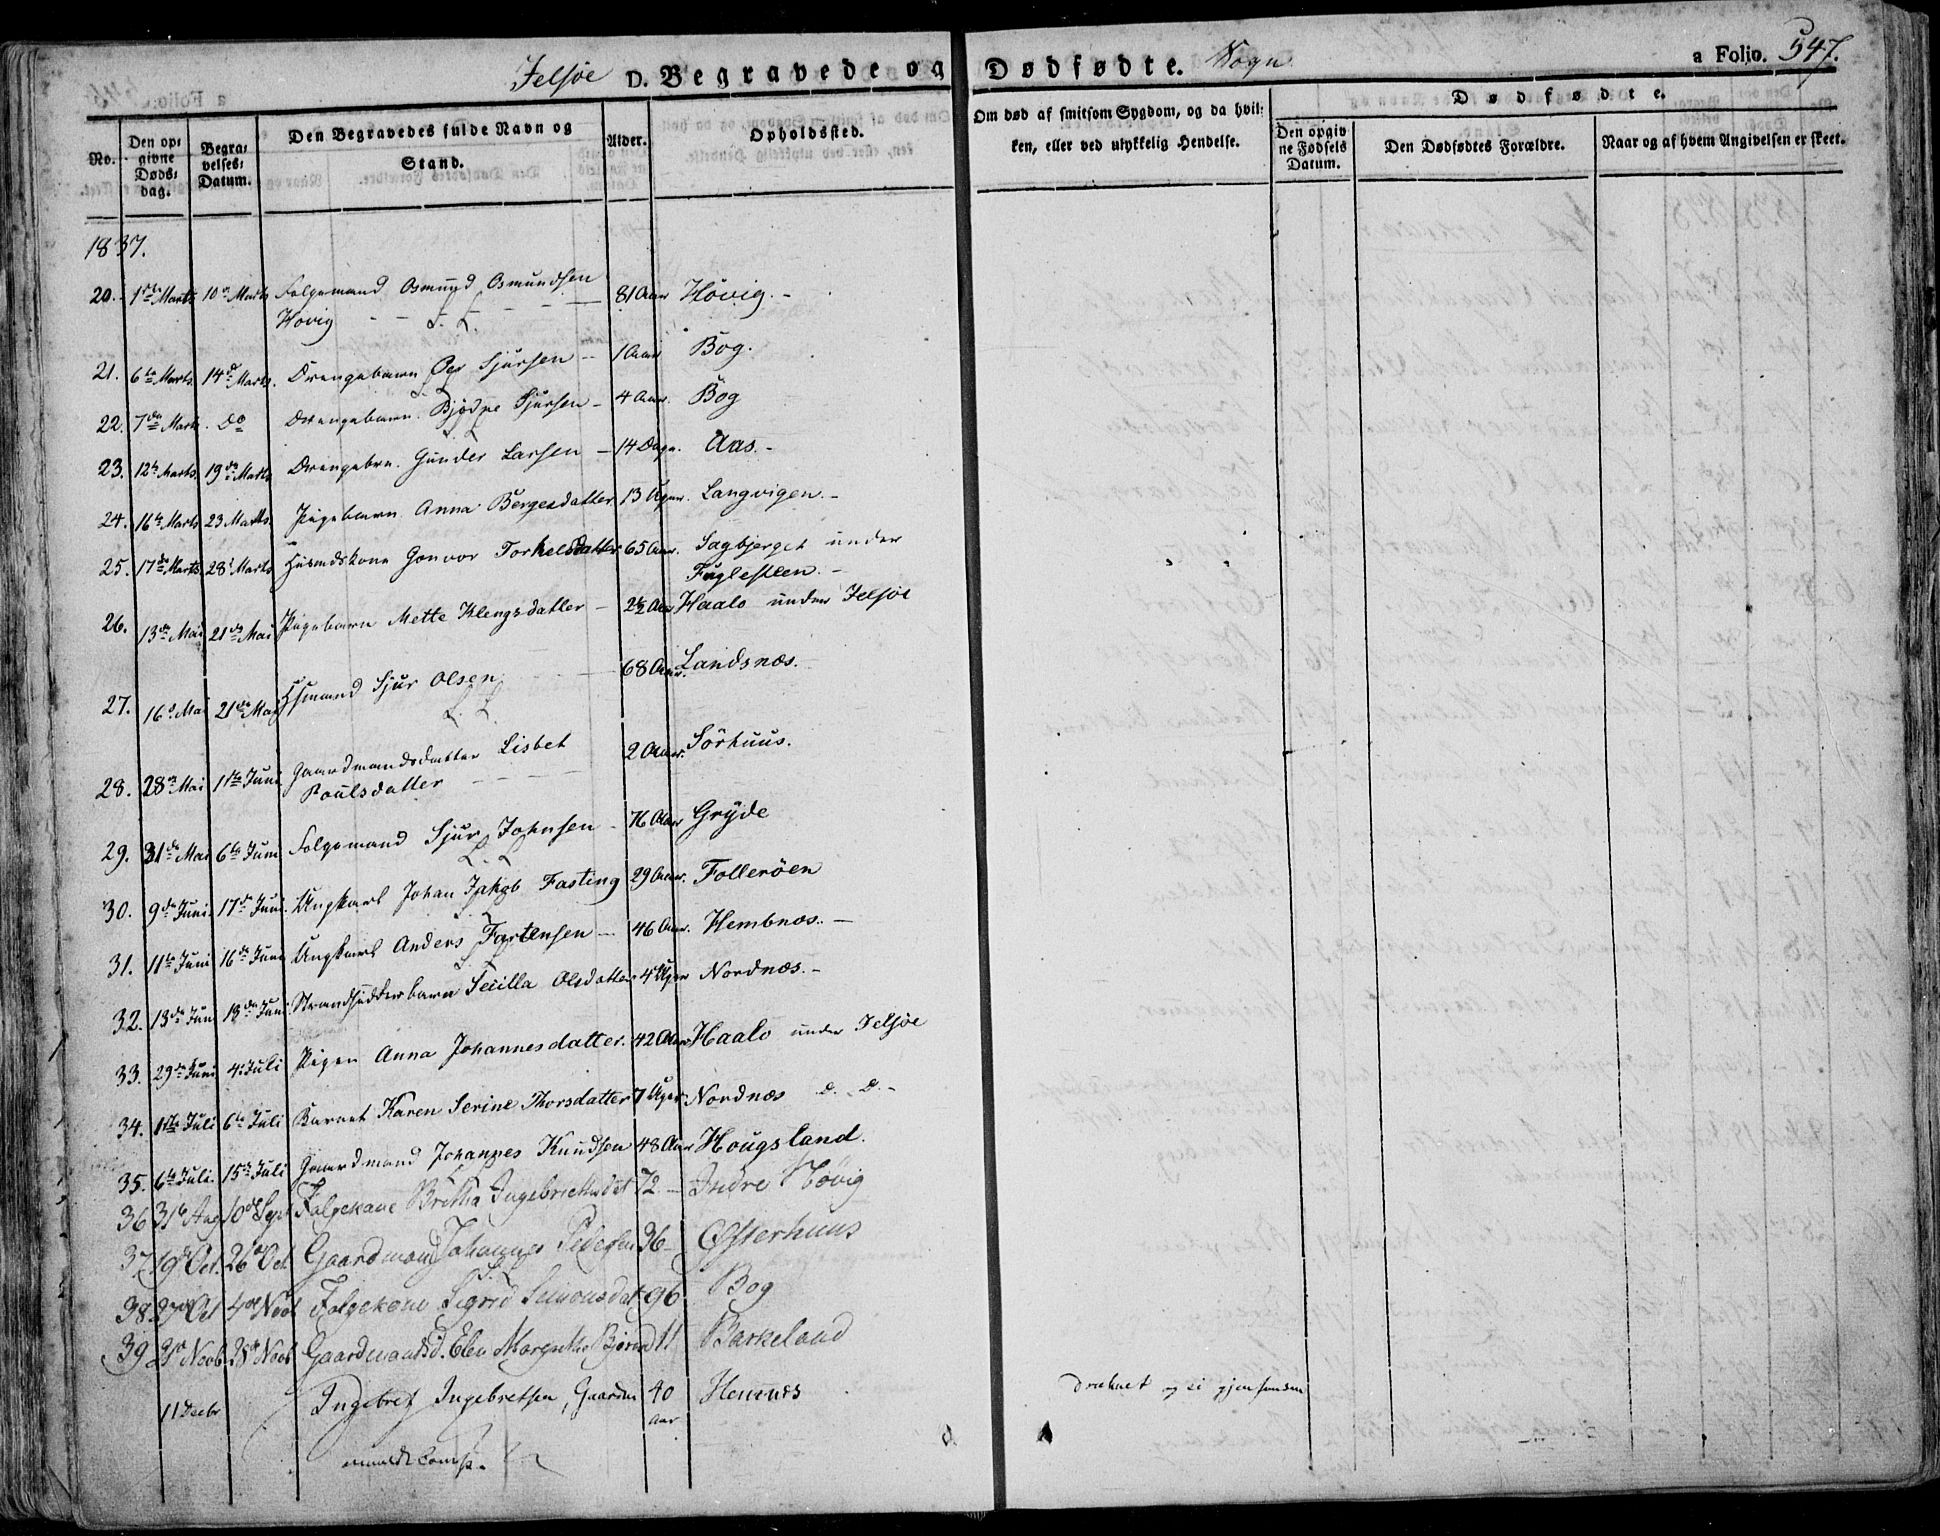 Jelsøe D. Begravede og Dødfødte. Sogn a Folio. 547.
No. Den opgivne Dødsdag. Begravelses Datum. Den Begravedes fulde Navn og Stand. Alder. Opholdssted. Om død af smitsom Sygdom, og da hvilken, eller ved ulykkelig Hendelse. Dødfødte. Den opgivne Fødsels Datum. Den Dødfødtes Forældre. Naar og af hvem Angivelsen er skeet.
1837.
20. 1ste Marts 10de Marts Folgemand Osmund Osmundsen 81 Aar Høvig. -
Høvig
21. 6te Marts 14de Marts. Drengebarn Per Sjursen - 1 Aar Bog.
22. 7de Marts. Do Drengebarn. Sjursen - 4 Aar. Bog
23. 12te Marts. 19de Marts Drengebrn. Gunder Larsen - 14 Dage. Aas. -
24. 16te Marts 23 Marts. Pigebarn Anna Bergesdatter 13 Uger. Langvigen. -
25. 17de Marts. 28de Marts Huusmdskone Gonvor Torkelsdatter 65 Aar. Sagbjerget under
Fuglesteen. -
26. 13de Mai 21de Mai Pigebarn Mette Klengsdatter - 2½ Aar Haalo under Jelsøe
27. 16de Mai 21de Mai Huusmand Sjur Olsen 68 Aar. Landsnæs.
28. 28de Mai 11te Juni Gaardmandsdatter Lisbet 2 Aar. Sørhuus.
Poulsdatter
29. 31de Mai 6te Juni Folgemand Sjur Johnsen - 76 Aar Gryde
30. 9de Juni. 17de Juni. Ungkarl Johan Jakob Fasting 29 Aar. Follerøen
31. 11te Juni 16de Juni Ungkarl Anders - 46 Aar. Hembnæs. -
32. 13de Juni 18de Juni. Strandsidderbarn Olsdatter 4 Uger Nordnæs. -
33. 29de Juni 4. Juli Pigen Anna Johannesdatter. 42 Aar Haalo under Jelsøe
34. 1ste Juli 6te Juli Barnet Karen Serine Thorsdatter 7 Uger Nordnæs
35. 6te Juli. 15de Juli Gaardmand Johannes Knudsen 48 Aar Hougsland.
36 31te Aug 10de Sept Folgekone Britha 72 - Indre Høvig
37 19de Oct. 26de Oct. Gaardmand Johannes Pedersen 36 - Østerhuus
38 27de Oct 4de Novb Folgekone Sigrid Simonsdat. 96 Bog
39 21de Novb. 28de Novb Gaardmansd. Elen Margrethe 11 Barkeland
11 Decbr Ingebret Ingebretsen, Gaardm 40 Hemnes druknet og ei gjenfunden
aar